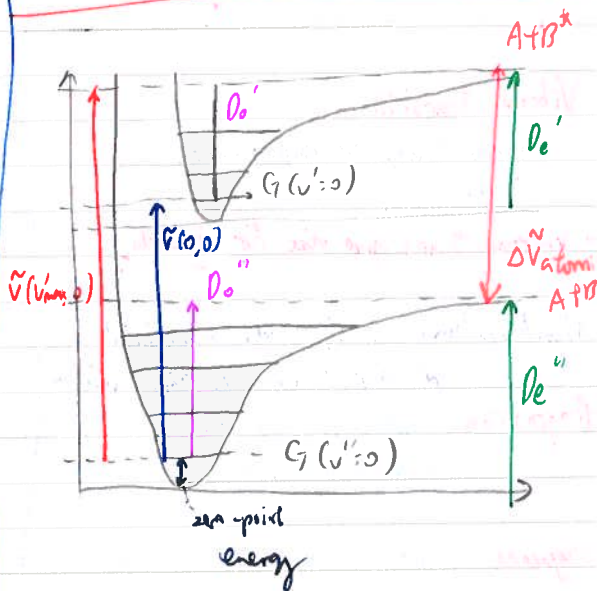 A+B*
D₀'
De'
G(v'=0)
ṽ(0,0)
Δṽatomic
ṽ(v'max, 0)
D₀"
A+B
De"
G(v"=0)
zero-point
energy